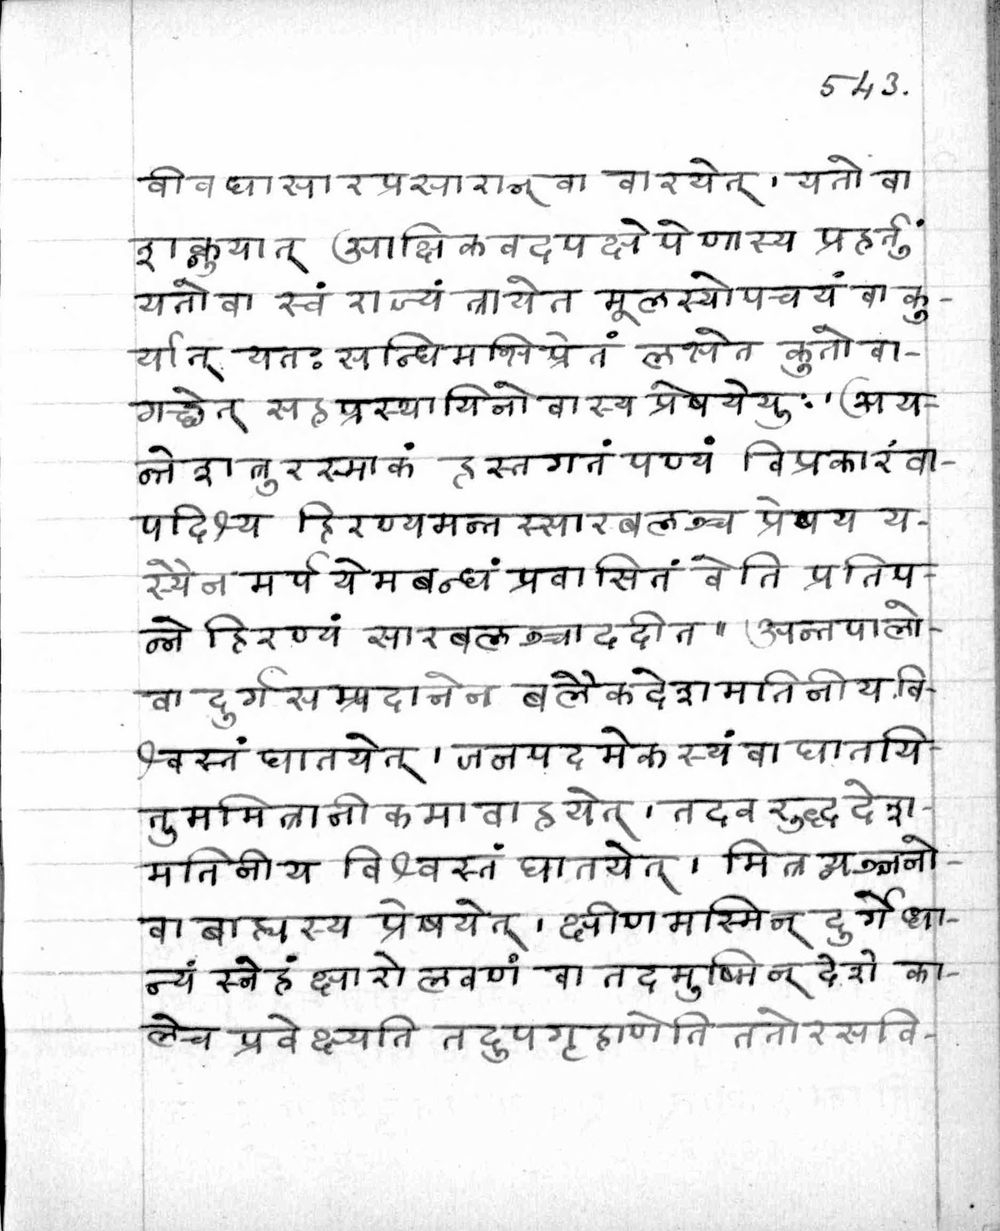 543.
वीवधासारप्रसारान् वा वारयेत् । यतो वा
शक्नुयात् आक्षिकवदपक्षेपेणास्य प्रहर्तुं
यतो वा स्वं राज्यं त्रायेत मूलस्योपचयं वा कु-
र्यात् यतः सन्धिमभिप्रेतं लभेत कुतो वा-
गच्छेत् सहप्रस्थायिनो वास्य प्रेषयेयुः । अय-
न्ते शत्रुरस्माकं हस्तगतं पण्यं विप्रकारं वा-
पदिश्य हिरण्यमन्तस्सारबलञ्च प्रेषय य-
स्यैनमर्पयेमबन्धं प्रवासितं वेति प्रतिप-
न्ने हिरण्यं सारबलञ्चाददीत ॥ अन्तपालो-
वा दुर्गसम्प्रदानेन बलैकदेशमतिनीय वि-
श्वस्तं घातयेत् । जनपदमेकस्थं वा घातयि-
तुममित्रानीकमावाहयेत् । तदवरुद्धदेश-
मतिनीय विश्वस्तं घातयेत् । मित्रव्यञ्जनो-
वा बाह्यस्य प्रेषयेत् । क्षीणमस्मिन् दुर्गे धा-
न्यं स्नेहं क्षारो लवणं वा तदमुष्मिन् देशे का-
लेच प्रवेक्ष्यति तदुपगृहाणेति ततो रसवि-